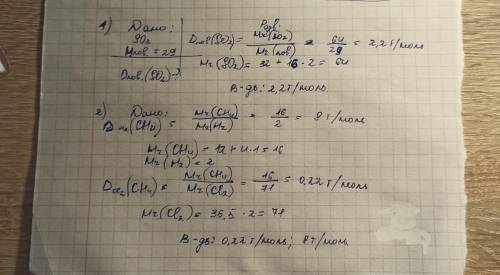 1) Дано: Розв:
SO₂
Mпов. = 29
Dпов.(SO₂) = Mr(SO₂) / Mr(пов.) = 64 / 29 = 2,2 г/моль
Dпов.(SO₂)-?
Mr(SO₂) = 32 + 16 · 2 = 64
В-дь: 2,2 г/моль.
2) Дано:
D H₂(CH₄) = Mr(CH₄) / Mr(H₂) = 16 / 2 = 8 г/моль
Mr(CH₄) = 12 + 4 · 1 = 16
Mr(H₂) = 2
D Cl₂(CH₄) = Mr(CH₄) / Mr(Cl₂) = 16 / 71 = 0,22 г/моль
Mr(Cl₂) = 35,5 · 2 = 71
В-дь: 0,22 г/моль; 8 г/моль